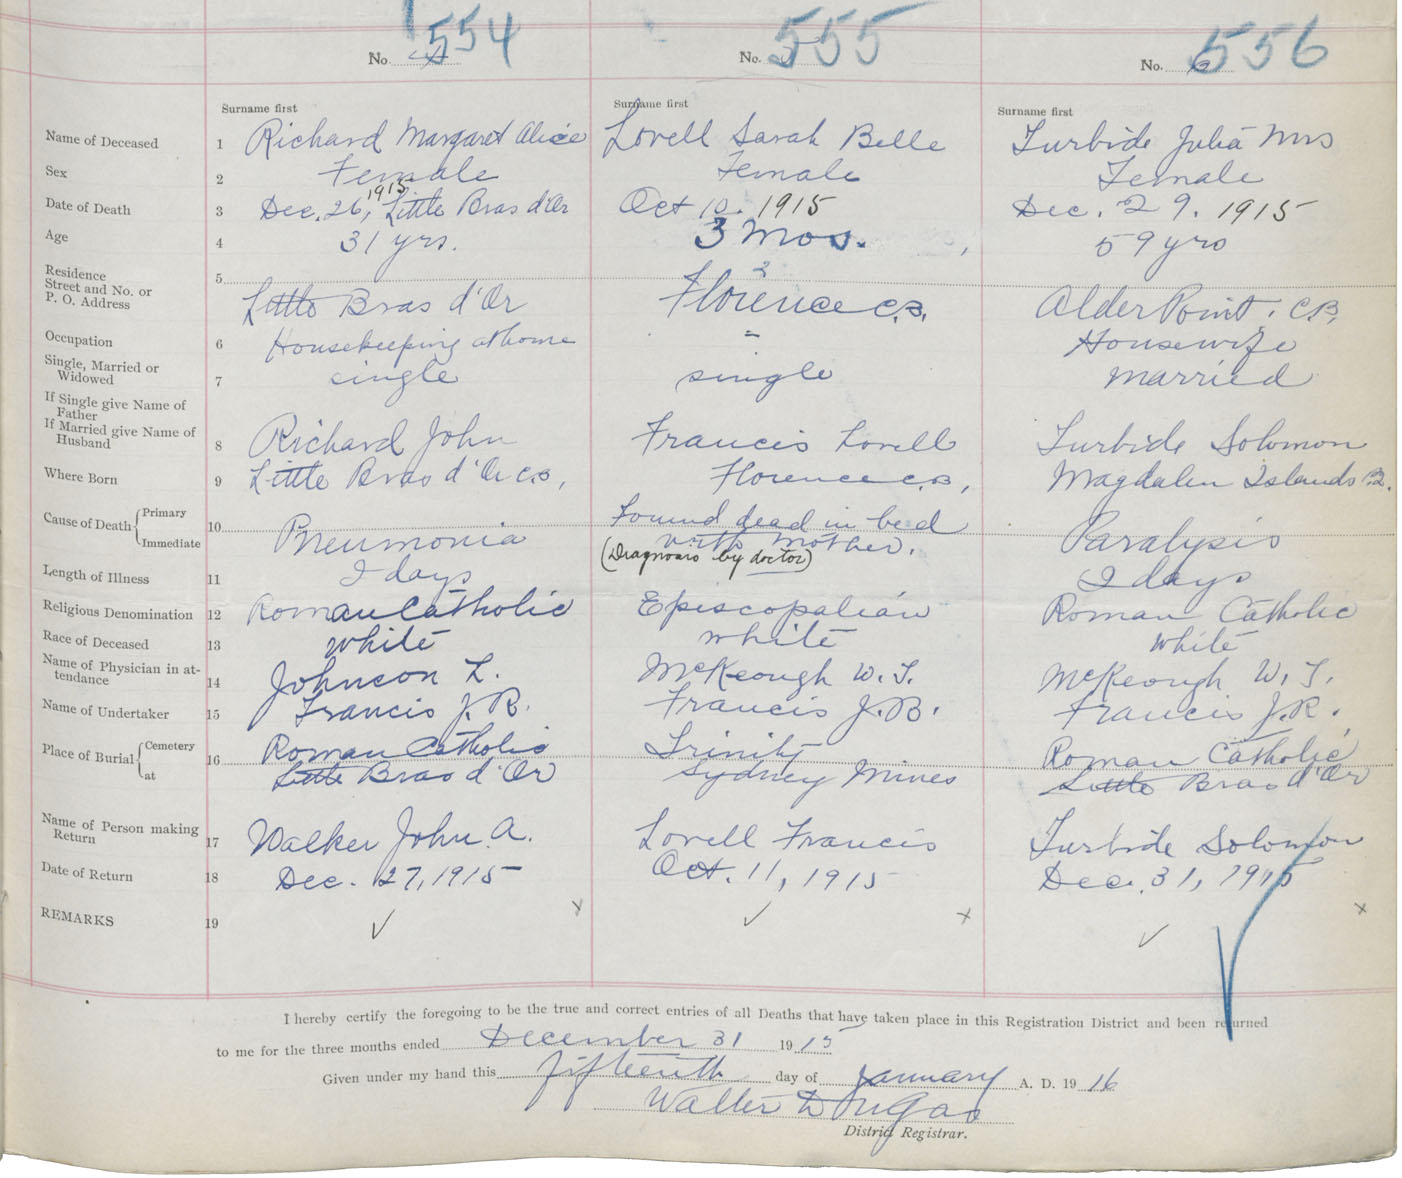 554 555 556
No. No. No.
Surname first Surname first Surname first
Name of Deceased 1 Richard Margaret Alice Lovell Sarah Belle Turbide Julia Mrs
Sex 2 Female Female Female
Date of Death 3 Dec. 26, 1915 Little Bras d'Or Oct 10. 1915 Dec. 29. 1915
Age 4 31 yrs. 3 Mos. 59 yrs
Residence
Street and No. or
P. O. Address 5 Little Bras d'Or Florence C.B. Alder Point. C.B.
Occupation 6 Housekeeping at home = Housewife
Single, Married or
Widowed 7 single single married
If Single give Name of
Father
If Married give Name of
Husband 8 Richard John Francis Lovell Turbide Solomon
Where Born 9 Little Bras d'Or C.B. Florence C.B. Magdalen Islands
Cause of Death { Primary Immediate 10 Pneumonia Found dead in bed with mother. Paralysis
(Diagnosis by doctor)
Length of Illness 11 2 days 2 days
Religious Denomination 12 Roman Catholic Episcopalian Roman Catholic
Race of Deceased 13 white white white
Name of Physician in at-
tendance 14 Johnson L. McKeough W. T. McKeough W. T.
Name of Undertaker 15 Francis J. R. Francis J. R. Francis J. R.
Place of Burial { Cemetery 16 Roman Catholic Trinity Roman Catholic
at Little Bras d'Or Sydney Mines Little Bras d'Or
Name of Person making
Return 17 Walker John A. Lovell Francis Turbide Solomon
Date of Return 18 Dec. 27, 1915 Oct. 11, 1915 Dec. 31, 1915
REMARKS 19
I hereby certify the foregoing to be the true and correct entries of all Deaths that have taken place in this Registration District and been returned
to me for the three months ended December 31 19 15
Given under my hand this fifteenth day of January A. D. 19 16
Walter Dugas
District Registrar.